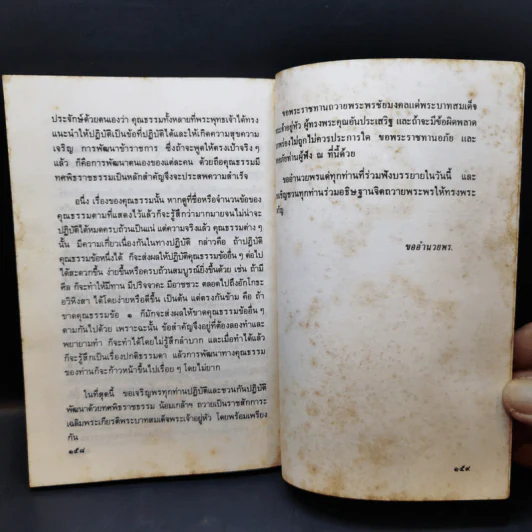 ประจักษ์ด้วยตนเองว่า คุณธรรมทั้งหลายที่พระพุทธเจ้าได้ทรง
แนะนำให้ปฏิบัติเป็นข้อที่ปฏิบัติได้และให้เกิดความสุขความ
เจริญ การพัฒนาข้าราชการ ซึ่งถ้าจะพูดให้ตรงเป้าจริง ๆ
แล้ว ก็คือการพัฒนาตนเองของแต่ละคน ด้วยถือคุณธรรมมี
ทศพิธราชธรรมเป็นหลักสำคัญจึงจะประสพความสำเร็จ
อนึ่ง เรื่องของคุณธรรมนั้น หากดูที่ชื่อหรือจำนวนข้อของ
คุณธรรมตามที่แสดงไว้แล้วก็จะรู้สึกว่ามากมายจนไม่น่าจะ
ปฏิบัติได้หมดครบถ้วนเป็นแน่ แต่ความจริงแล้ว คุณธรรมต่าง ๆ
นั้น มีความเกี่ยวเนื่องกันในทางปฏิบัติ กล่าวคือ ถ้าปฏิบัติ
คุณธรรมข้อหนึ่งได้ ก็จะส่งผลให้ปฏิบัติคุณธรรมข้ออื่น ๆ ต่อไป
ได้สะดวกขึ้น ง่ายขึ้นหรือครบถ้วนสมบูรณ์ยิ่งขึ้นด้วย เช่น ถ้ามี
ศีล ก็จะทำให้มีทาน มีปริจจาคะ มีอาชชวะ ตลอดไปถึงอักโกธะ
อวิหิงสา ได้โดยง่ายหรือดีขึ้น เป็นต้น แต่ตรงกันข้าม คือ ถ้า
ขาดคุณธรรมข้อ ๑ ก็มักจะส่งผลให้ขาดคุณธรรมข้ออื่น ๆ
ตามกันไปด้วย เพราะฉะนั้น ข้อสำคัญจึงอยู่ที่ต้องลองทำและ
พยายามทำ ก็จะทำได้โดยไม่รู้สึกลำบาก และเมื่อทำได้แล้ว
ก็จะรู้สึกเป็นเรื่องปกติธรรมดา แล้วการพัฒนาทางคุณธรรม
ของท่านก็จะก้าวหน้าขึ้นไปเรื่อย ๆ โดยไม่ยาก
ในที่สุดนี้ ขอเจริญพรทุกท่านปฏิบัติและชวนกันปฏิบัติ
พัฒนาด้วยทศพิธราชธรรม น้อมเกล้าฯ ถวายเป็นราชสักการะ
เฉลิมพระเกียรติพระบาทสมเด็จพระเจ้าอยู่หัว โดยพร้อมเพรียง
กัน
๑๕๘
ขอพระราชทานถวายพระพรชัยมงคลแด่พระบาทสมเด็จ
อยู่หัว ผู้ทรงพระคุณอันประเสริฐ และถ้าจะมีข้อผิดพลาด
ไม่ถูกไม่ควรประการใด ขอพระราชทานอภัย และ
ท่านผู้ฟัง ณ ที่นี้ด้วย
ขออำนวยพรแด่ทุกท่านที่ร่วมฟังบรรยายในวันนี้ และ
ชวนทุกท่านร่วมอธิษฐานจิตถวายพระพรให้ทรงพระ
ขออำนวยพร.
๑๕๙